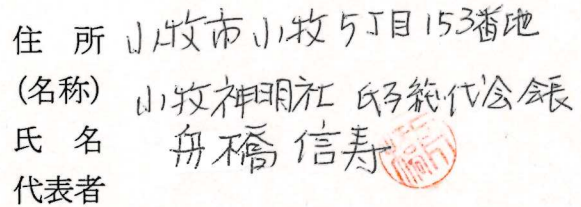 住所 小牧市小牧5丁目153番地
(名称) 小牧神明社 氏子総代会会長
氏名 舟橋信寿
代表者